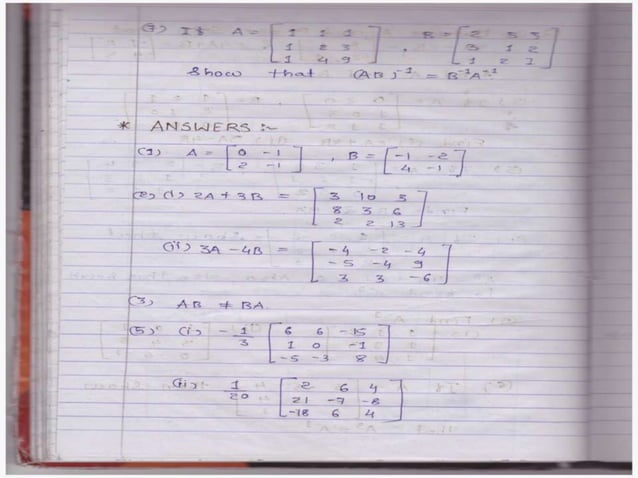 (7) If A = [ 1 1 1 ] , B = [ 2 5 3 ]
[ 1 2 3 ] [ 3 1 2 ]
[ 1 4 9 ] [ 1 2 1 ]
Show that (AB)⁻¹ = B⁻¹A⁻¹.
* ANSWERS :-
(1) A = [ 0 -1 ] , B = [ -1 -2 ]
[ 2 -1 ] [ 4 -1 ]
(2) (i) 2A + 3B = [ 3 10 5 ]
[ 8 3 6 ]
[ 2 2 13 ]
(ii) 3A - 4B = [ -4 -2 -4 ]
[ -5 -4 9 ]
[ 3 3 -6 ]
(3) AB ≠ BA.
(5) (i) - 1/3 [ 6 6 -15 ]
[ 1 0 -1 ]
[ -5 -3 8 ]
(ii) 1/20 [ 2 6 4 ]
[ 21 -7 -8 ]
[ -18 6 4 ]